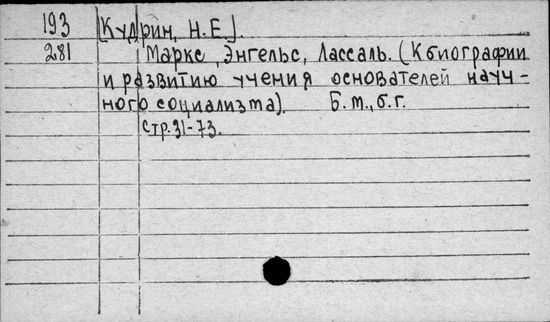 193 [Кудрин, Н.Е.].
281 Маркс, Энгельс, Лассаль. (К биографии
и развитию учения основателей науч-
ного социализма). Б.м., б.г.
Стр. 31-73.